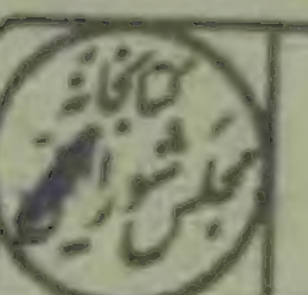 کتابخانه
مجلس شورای